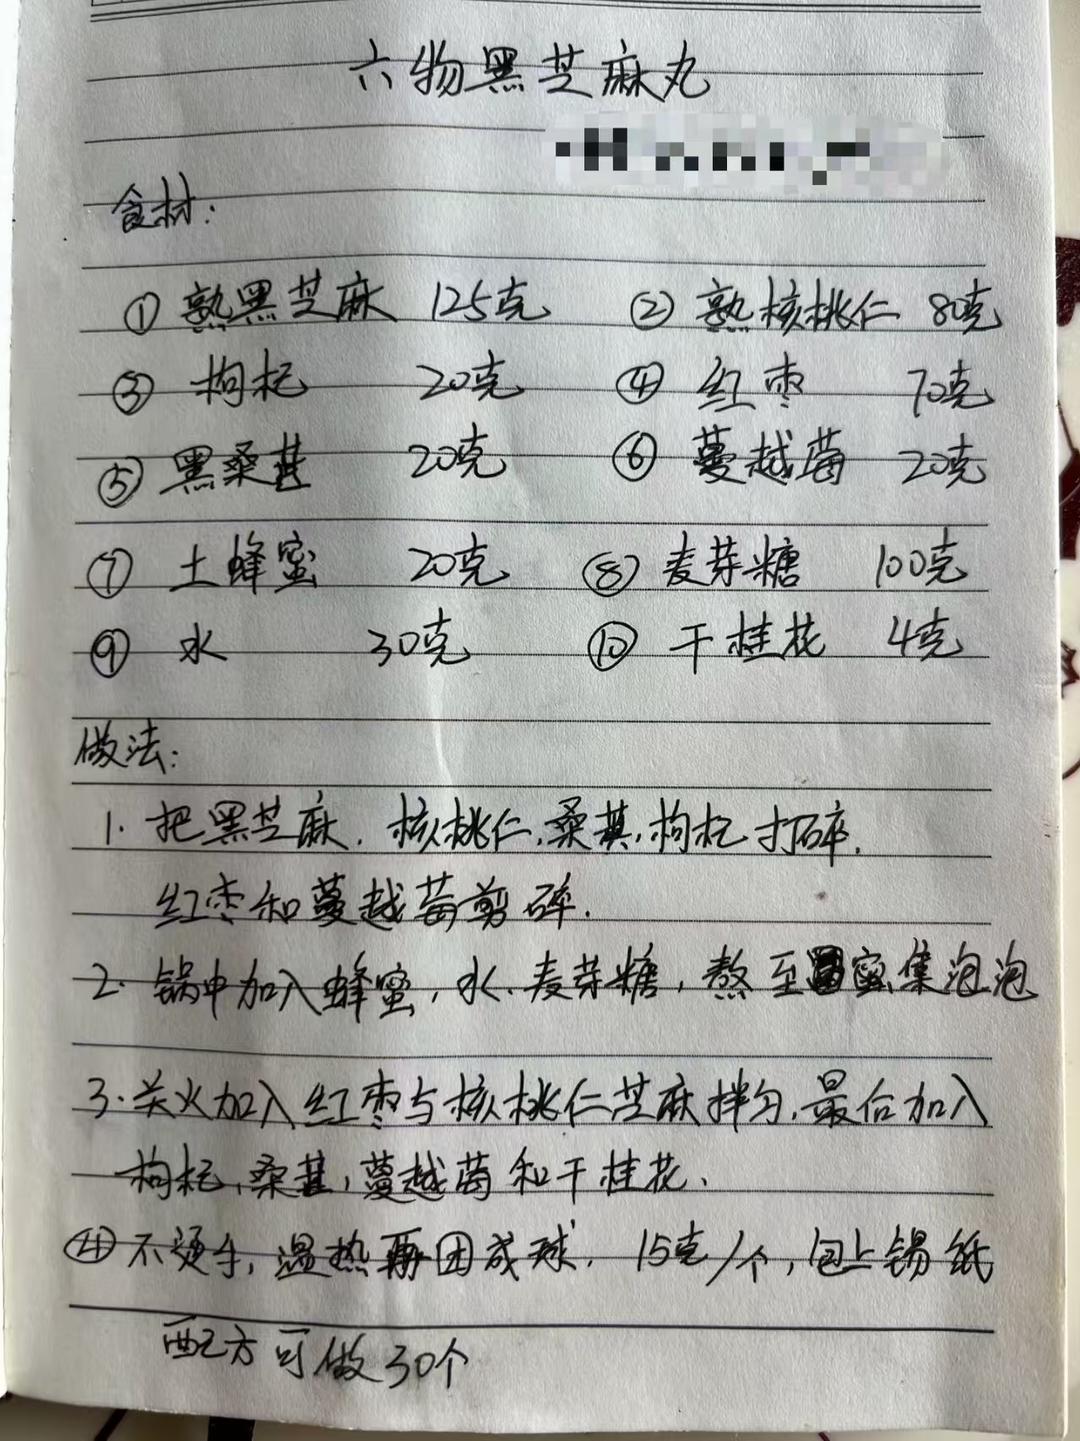 六物黑芝麻丸
食材:
① 熟黑芝麻 125克 ② 熟核桃仁 80克
③ 枸杞 20克 ④ 红枣 70克
⑤ 黑桑葚 20克 ⑥ 蔓越莓 20克
⑦ 土蜂蜜 20克 ⑧ 麦芽糖 100克
⑨ 水 30克 ⑩ 干桂花 4克
做法:
1. 把黑芝麻, 核桃仁, 桑葚, 枸杞打碎.
红枣和蔓越莓剪碎.
2. 锅中加入蜂蜜, 水、麦芽糖, 熬至密集泡泡
3. 关火加入红枣与核桃仁芝麻拌匀, 最后加入
枸杞, 桑葚, 蔓越莓和干桂花、
④ 不烫手, 温热再团成球. 15克/个, 包上锡纸
配方可做30个